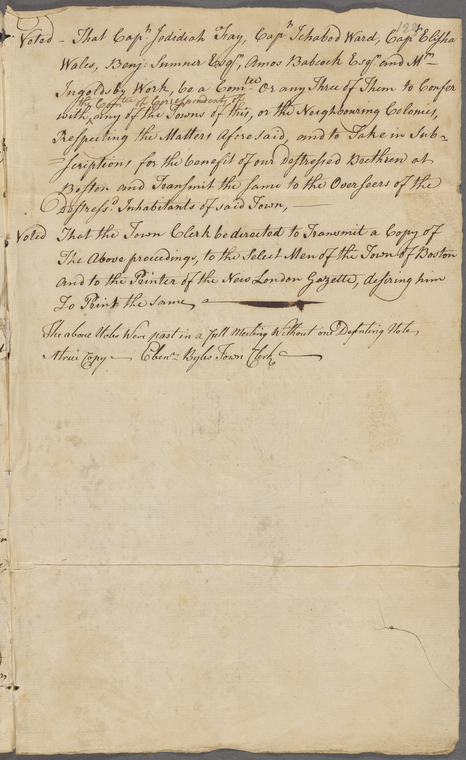 Voted - That Capt Jedidiah Fay, Capt Ichabod Ward, Capt Elisha
Wales, Benj: Sumner Esqr, Amos Babcock Esqr and Mr
Ingoldsby Work, be a Comtee Or any Three of Them to Confer
the Comtee of Correspondents of
with, any of the Towns of this, or the Neighbouring Colonies,
Respecting the Matters Aforesaid, and to Take in Sub=
=scriptions for the benefit of our Destressed Breethren at
Boston and Transmit the same to the Overseers of the
Destress'd Inhabitants of said Town, —
Voted That the Town Clerk be directed to Transmit a Copy of
The Above proceedings, to the Select Men of the Town of Boston
and to the Printer of the New London Gazette, desiring him
To Print the Same,
The above Votes Were past in a full Meeting Without one Desenting Vote,
A true Copy — Ebenr Byles Town Clerk —